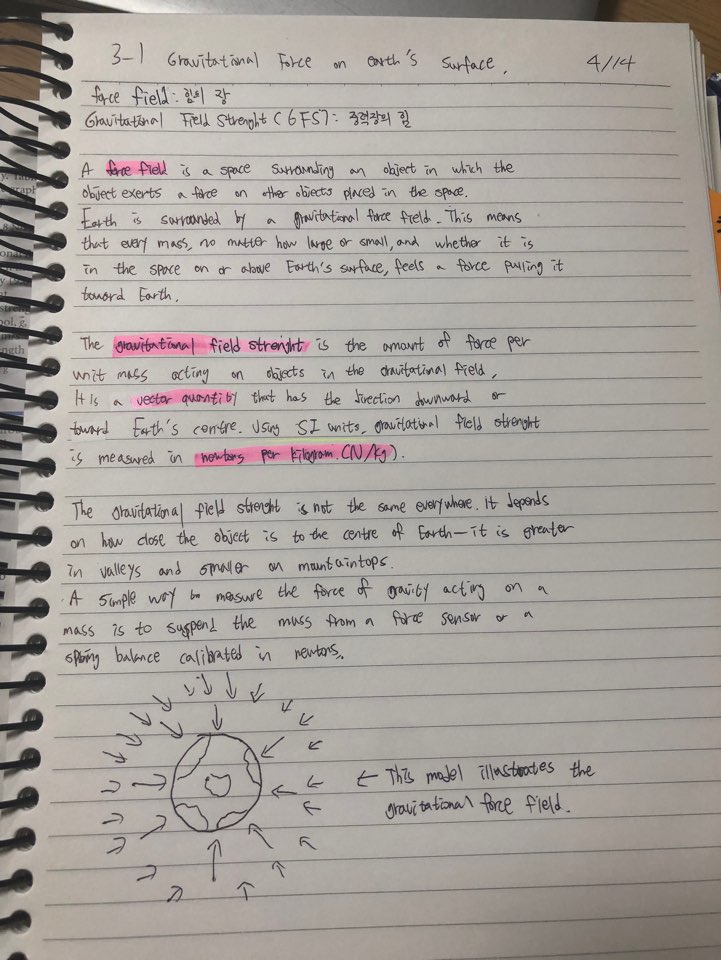 3-1 Gravitational Force on earth's Surface. 4/14
force field : 힘의 장
Gravitational Field Strenght (GFS) : 중력장의 힘
A force field is a space surrounding an object in which the
object exerts a force on other objects placed in the space.
Earth is surrounded by a gravitational force field. This means
that every mass, no matter how large or small, and whether it is
in the space on or above Earth's surface, feels a force pulling it
toward Earth.
The gravitational field strenght is the amount of force per
unit mass acting on objects in the gravitational field.
It is a vector quantity that has the direction downward or
toward Earth's centre. Using SI units, gravitational field strenght
is measured in newtons per kilogram. (N/kg).
The gravitational field strenght is not the same everywhere. It depends
on how close the object is to the centre of Earth — it is greater
in valleys and smaller on mountaintops.
A simple way to measure the force of gravity acting on a
mass is to suspend the mass from a force sensor or a
spring balance calibrated in newtons.
← This model illustrates the
gravitational force field.